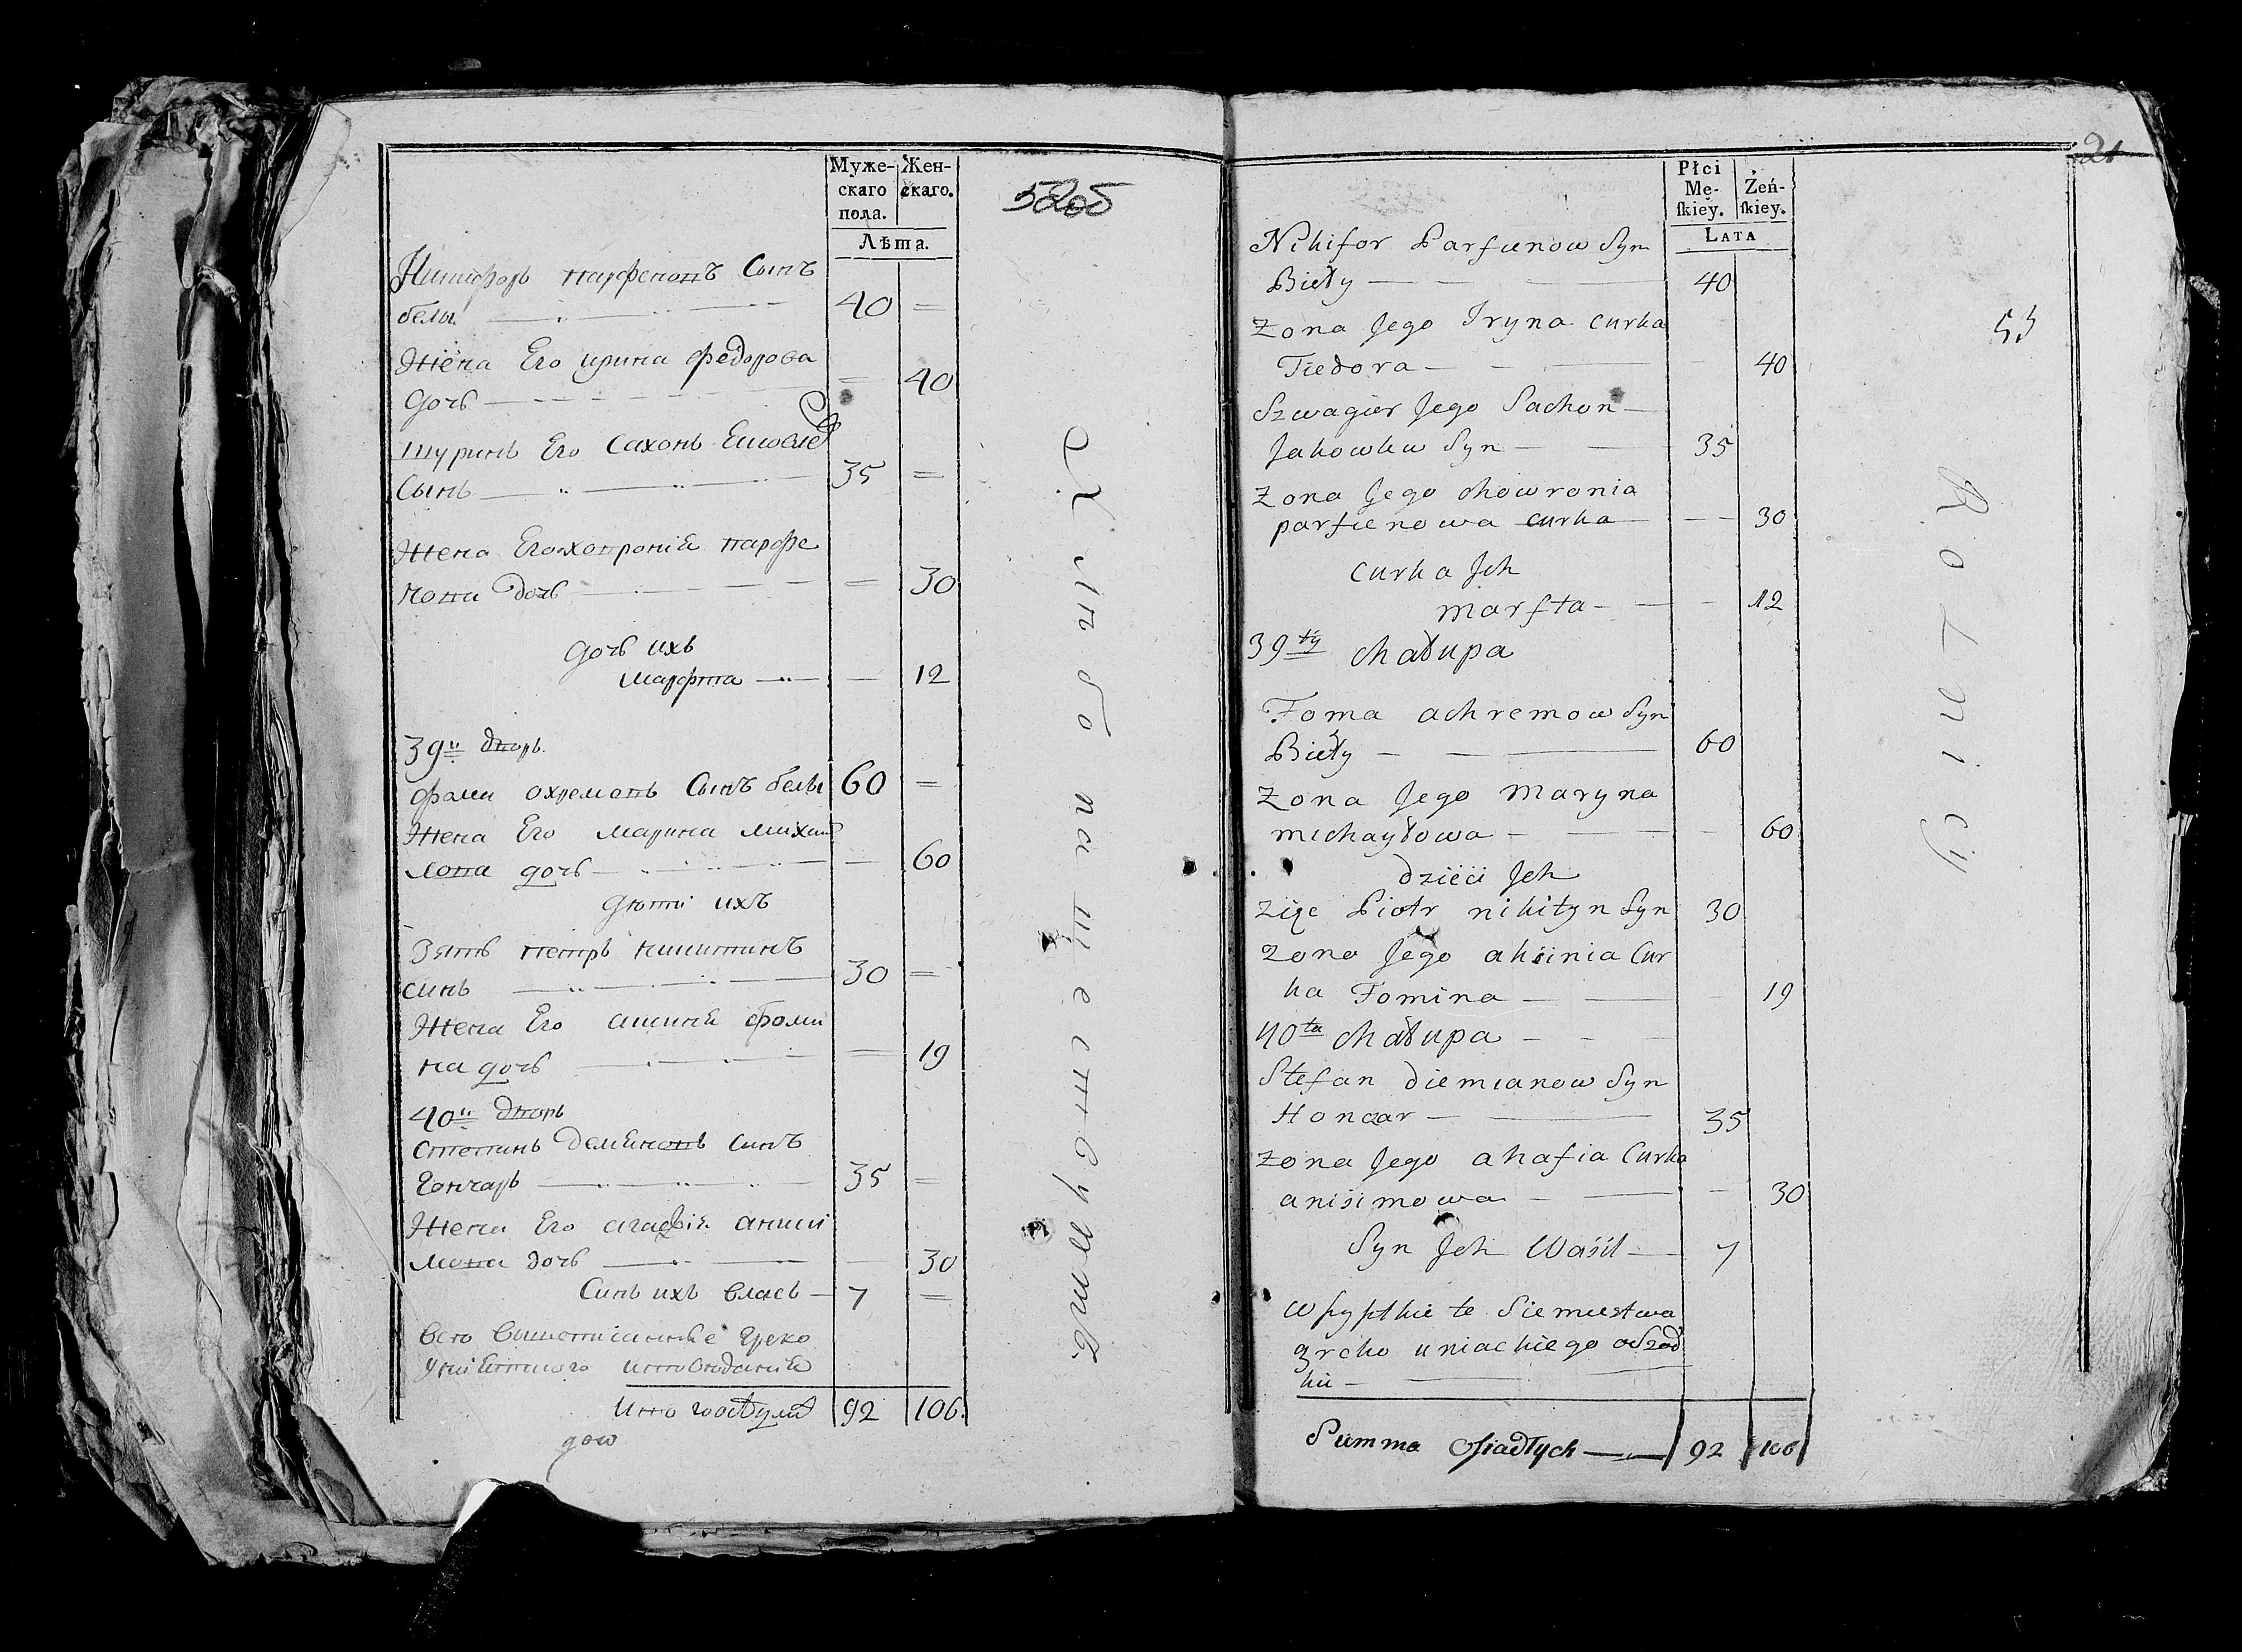 Муже-
скаго
пола.
Жен-
скаго.
Лѣта.
5205
Никифоръ парфеновъ Сынъ
белы 40 =
Жена Его ирина федорова
дочь = 40
шуринъ Его Сахонъ
Сынъ 35 =
Жена Его ховронія парфе
нова дочь = 30
дочь ихъ
Марфта — 12
39й дворъ
фома охремовъ Сынъ белы 60 =
Жена Его марина михаи
лова дочь — 60
дѣти ихъ
Зять петръ никитинъ
синъ 30 =
Жена Его аксинья фоми
на дочь — 19
40й дворъ
степанъ демьяновъ синъ
Гончаръ 35 =
Жена Его агафія аниси
мова дочь — 30
Синъ ихъ власъ 7 =
всѣ вышеписанные Греко
92 106.
Хлѣбопашествуютъ
21
Płci
Mę-
ſkiey.
Żeń-
ſkiey.
LATA
Nikifor Parfienow Syn
Biéły 40
Zona Jego Iryna Curka
Fiedora 40
Szwagier Jego Sachon
Jakowku Syn 35
Zona Jego chowronia
parfienowa curka 30
Curka Jch
marfta 12
39ty chałupa
Foma achremow Syn
Biéły 60
Zona Jego Maryna
michayłowa 60
dzieci Jch
zięc Piotr nikityn Syn 30
Zona Jego aksinia Cur
ka Fomina 19
40ta chałupa
Stefan diemianow Syn
Honczar 35
Zona Jego ahafia Curka
anisimowa 30
Syn Jch Waśil 7
wſzyſtkie te Siemieſtwa
greko uniackiego obrząd
ku
Summa Oſiadłych 92 106
53
Rolnicy